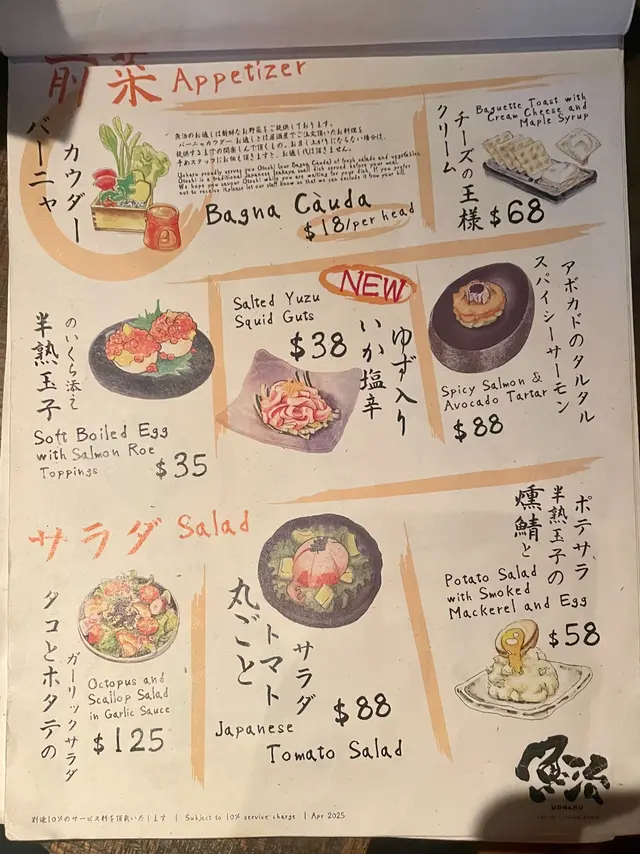 前菜 Appetizer
バーニャ
カウダー
魚治のお通しは新鮮なお野菜をご提供しております。
Bagna Càuda
$18/per head
クリーム
チーズの王様
Baguette Toast with
Cream Cheese and
Maple Syrup
$68
半熟玉子
のいくら添え
Soft Boiled Egg
with Salmon Roe
Toppings
$35
NEW
Salted Yuzu
Squid Guts
$38
ゆず入り
いか塩辛
アボカドのタルタル
スパイシーサーモン
Spicy Salmon &
Avocado Tartar
$88
サラダ Salad
タコとホタテの
ガーリックサラダ
Octopus and
Scallop Salad
in Garlic Sauce
$125
丸ごと
トマト
サラダ
$88
Japanese
Tomato Salad
ポテサラ
半熟玉子の
燻鯖と
Potato Salad
with Smoked
Mackerel and Egg
$58
魚治
UOHARU
別途10%のサービス料を頂戴いたします | Subject to 10% service charge | Apr 2025